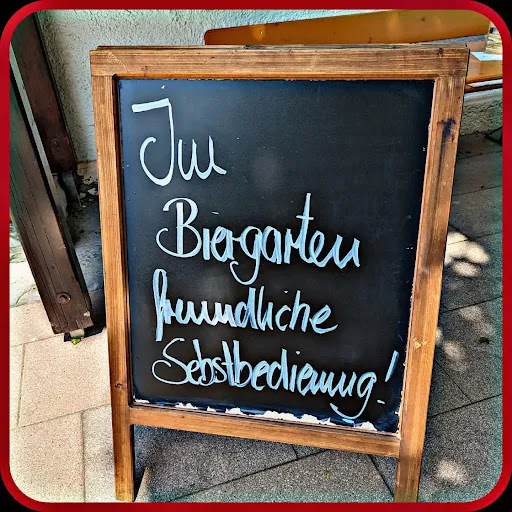 Im
Biergarten
freundliche
Sebstbedienung!